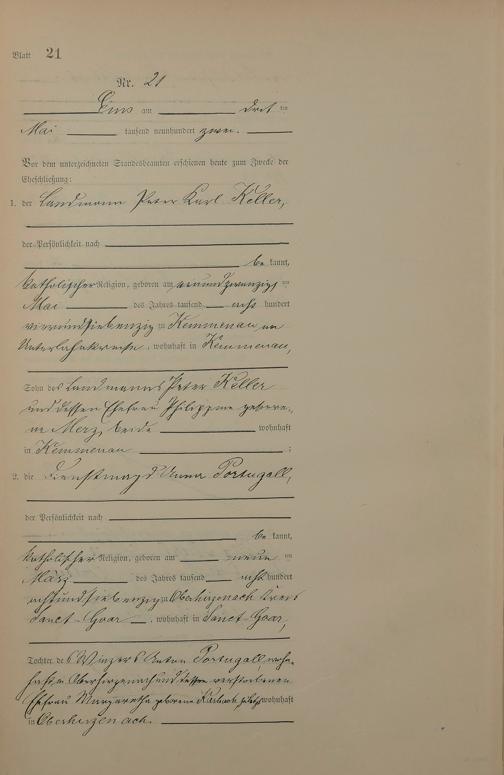 Blatt 21
Nr. 21
Ems am dritten
Mai tausend neunhundert zwei.
Vor dem unterzeichneten Standesbeamten erschienen heute zum Zwecke der
Eheschließung:
1. der Landmann Peter Karl Keller,
der Persönlichkeit nach
be kannt,
katholischer Religion, geboren am einundzwanzigsten
Mai des Jahres tausend acht hundert
vierundsiebenzig zu Kemmenau im
Unterlahnkreise, wohnhaft in Kemmenau,
Sohn des Landmanns Peter Keller
und dessen Ehefrau Philippine gebore-
ne Merz, beide wohnhaft
in Kemmenau ;
2. die Dienstmagd Anna Portugall,
der Persönlichkeit nach
be kannt,
katholischer Religion, geboren am neunten
März des Jahres tausend acht hundert
achtundsiebenzig zu Oberhirzenach Kreis
Sanct-Goar, wohnhaft in Sanct-Goar,
Tochter des Winzers Anton Portugall, wohn-
haft in Oberhirzenach und dessen verstorbenen
Ehefrau Margaretha geborene zuletzt wohnhaft
in Oberhirzenach.